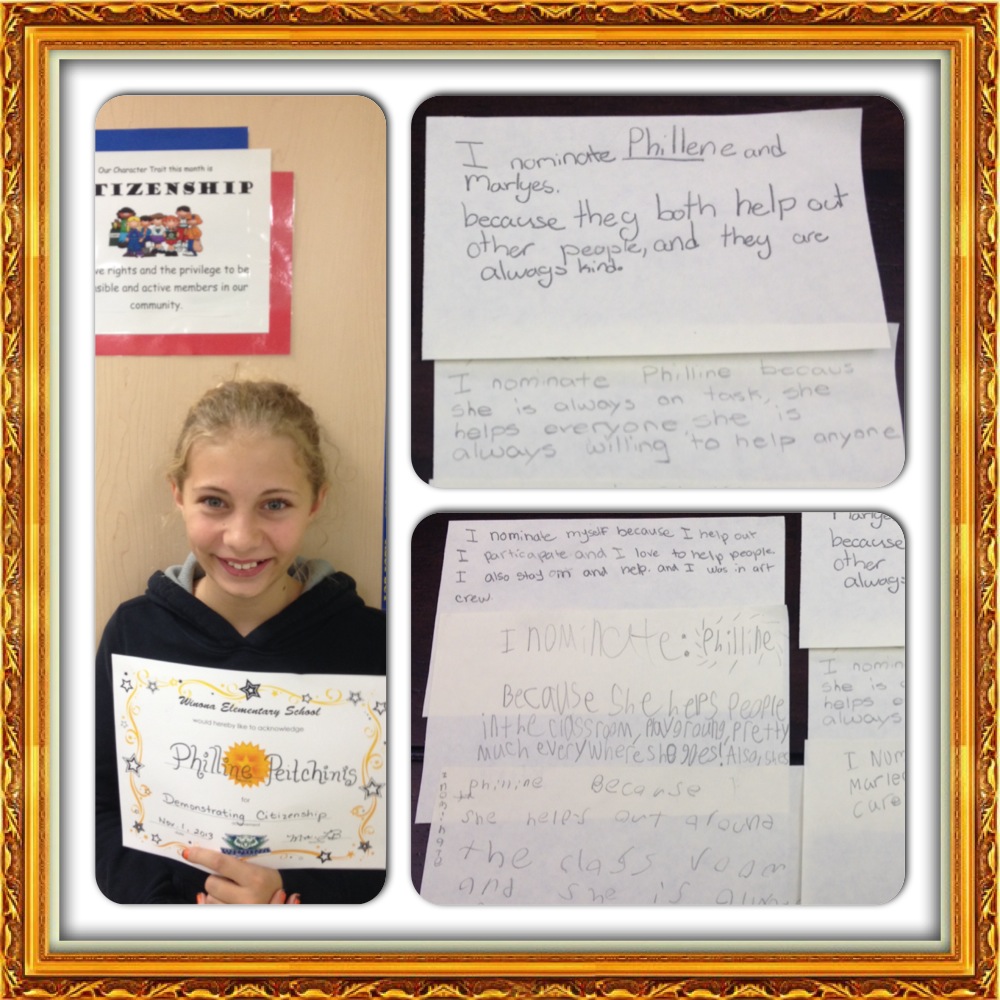 Our Character Trait this month is
TIZENSHIP
ve rights and the privilege to be
sible and active members in our
community.
Winona Elementary School
would hereby like to acknowledge
Philline Peitchinis
for
Demonstrating Citizenship
Nov. 1, 2013
I nominate Phillene and
Marlyes.
because they both help out
other people, and they are
always kind.
I nominate Philline becaus
she is always on task, she
helps everyone she is
always willing to help anyone
I nominate myself because I help out
I particapate and I love to help people.
I also stay in and help. and I was in art
crew.
I nominate: Philline
Because She helps People
in the classroom, playground, Pretty
much everywhere she goes! Also, shes
I nominate
philline Because
she helps out around
the class room
and she is
Marlye
because
other
always
I nomin
she is
helps e
always
I Nom
Marle
cure